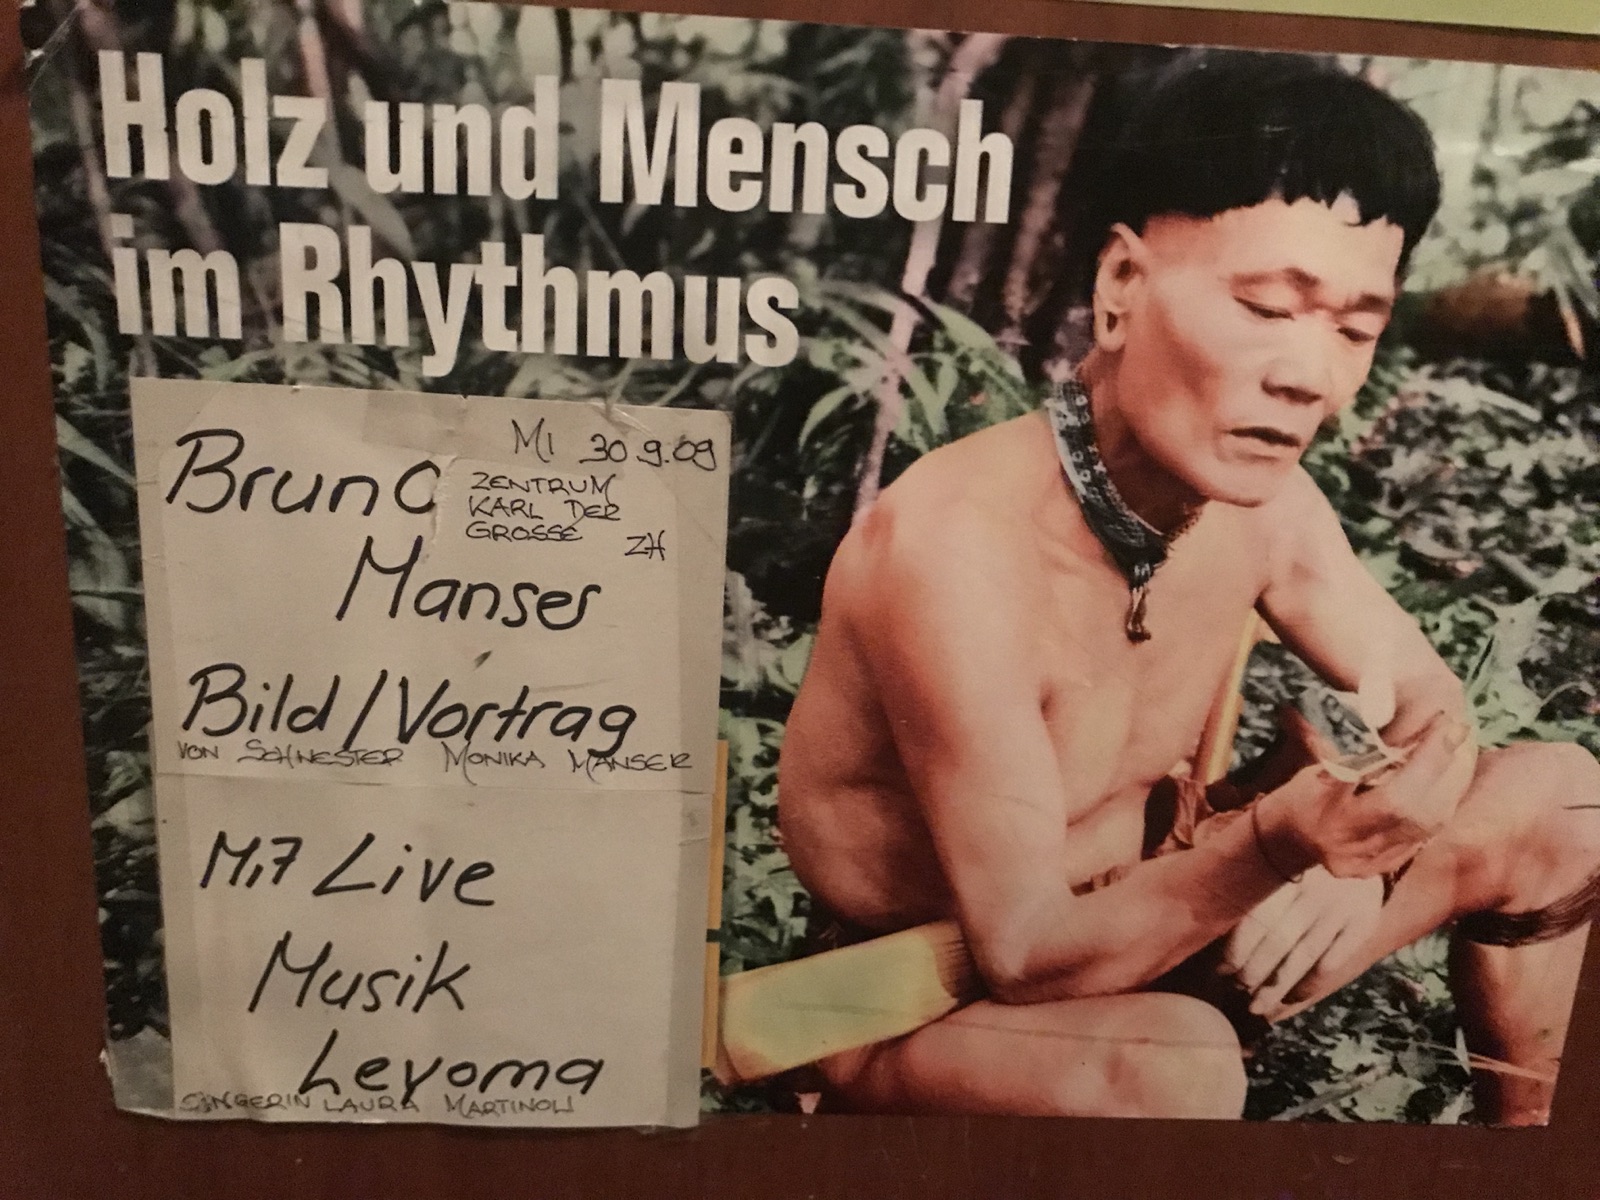 Holz und Mensch
im Rhythmus
MI 30.9.09
Bruno
ZENTRUM
KARL DER
GROSSE
ZH
Manser
Bild/Vortrag
VON SCHWESTER MONIKA MANSER
Mit Live
Musik
Leyoma
SÄNGERIN LAURA MARTINOLI